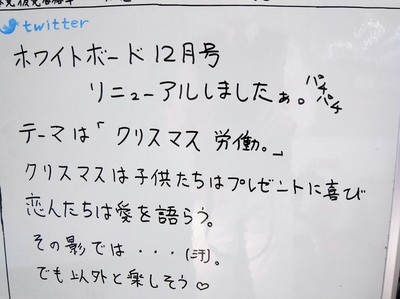 twitter
ホワイトボード 12月号
リニューアルしましたぁ。パチパチ
テーマは「クリスマス 労働。」
クリスマスは子供たちはプレゼントに喜び
恋人たちは愛を語らう。
その影では・・・(汗)。
でも以外と楽しそう♡